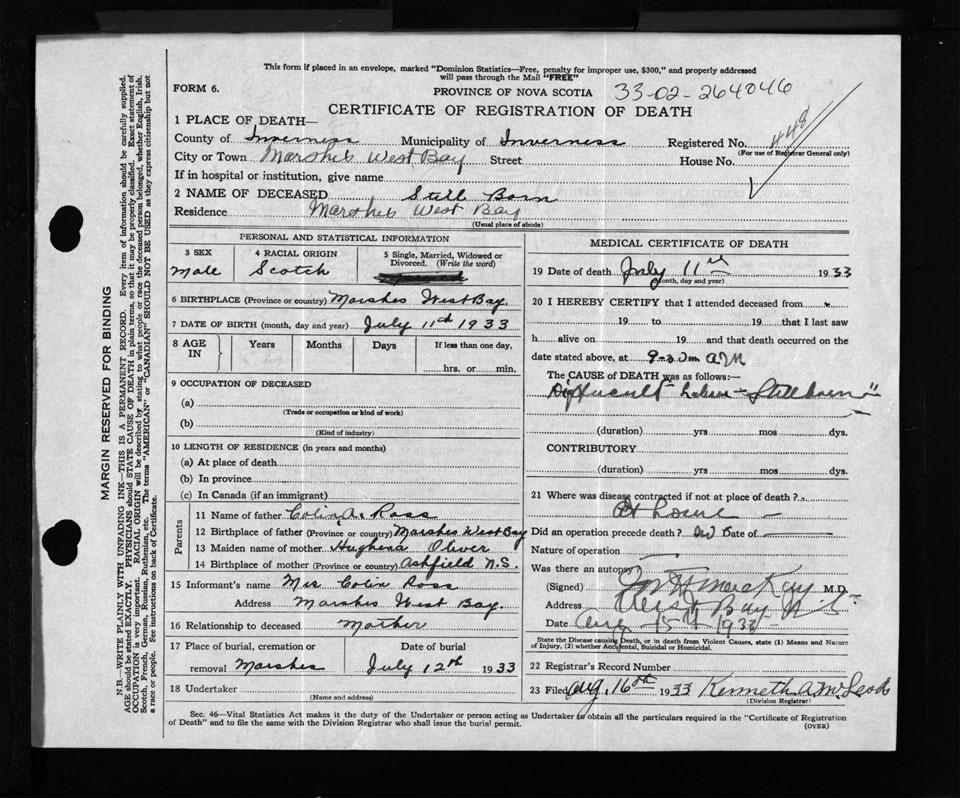 This form if placed in an envelope, marked "Dominion Statistics—Free, penalty for improper use, $300," and properly addressed
will pass through the Mail "FREE"
FORM 6.
PROVINCE OF NOVA SCOTIA 33-02-264846
CERTIFICATE OF REGISTRATION OF DEATH
1 PLACE OF DEATH—
County of Inverness Municipality of Inverness Registered No. 448
(For use of Registrar General only)
City or Town Marshes West Bay Street House No.
If in hospital or institution, give name
2 NAME OF DECEASED Still Born
Residence Marshes West Bay
(Usual place of abode)
PERSONAL AND STATISTICAL INFORMATION
3 SEX 4 RACIAL ORIGIN 5 Single, Married, Widowed or
Divorced. (Write the word)
Male Scotch
6 BIRTHPLACE (Province or country) Marshes West Bay.
7 DATE OF BIRTH (month, day and year) July 11th 1933
8 AGE IN Years Months Days If less than one day,
hrs. or min.
9 OCCUPATION OF DECEASED
(a)
(Trade or occupation or kind of work)
(b)
(Kind of industry)
10 LENGTH OF RESIDENCE (in years and months)
(a) At place of death
(b) In province
(c) In Canada (if an immigrant)
Parents
11 Name of father Colin A. Ross
12 Birthplace of father (Province or country) Marshes West Bay
13 Maiden name of mother Hughena Oliver
14 Birthplace of mother (Province or country) Ashfield N.S.
15 Informant's name Mrs Colin Ross
Address Marshes West Bay.
16 Relationship to deceased Mother
17 Place of burial, cremation or Date of burial
removal Marshes July 12th 1933
18 Undertaker
(Name and address)
MEDICAL CERTIFICATE OF DEATH
19 Date of death July 11th 1933
(Month, day and year)
20 I HEREBY CERTIFY that I attended deceased from
19 to 19 that I last saw
h alive on 19 and that death occurred on the
date stated above, at 9-30 AM
The CAUSE of DEATH was as follows:—
Difficult Labour - Stillborn
(duration) yrs mos dys.
CONTRIBUTORY
(duration) yrs mos dys.
21 Where was disease contracted if not at place of death?
At home
Did an operation precede death? no Date of
Nature of operation
Was there an autopsy?
(Signed) MacKay M.D.
Address West Bay
Date Aug 15th 1933
State the Disease causing Death, or in death from Violent Causes, state (1) Means and Nature
of Injury, (2) whether Accidental, Suicidal or Homicidal.
22 Registrar's Record Number
23 Filed Aug. 16th 1933 Kenneth A. McLeod
(Division Registrar)
Sec. 46—Vital Statistics Act makes it the duty of the Undertaker or person acting as Undertaker to obtain all the particulars required in the "Certificate of Registration
of Death" and to file the same with the Division Registrar who shall issue the burial permit.
(OVER)
MARGIN RESERVED FOR BINDING
N.B.—WRITE PLAINLY WITH UNFADING INK—THIS IS A PERMANENT RECORD. Every item of information should be carefully supplied.
AGE should be stated EXACTLY. PHYSICIANS should STATE CAUSE OF DEATH in plain terms, so that it may be properly classified. Exact statement of
OCCUPATION is very important. RACIAL ORIGIN will be described by stating to what people or race the deceased person belonged, whether English, Irish,
Scotch, French, German, Russian, Ruthenian, etc. The terms "AMERICAN" or "CANADIAN" SHOULD NOT BE USED as they express citizenship but not
a race or people. See instructions on back of Certificate.